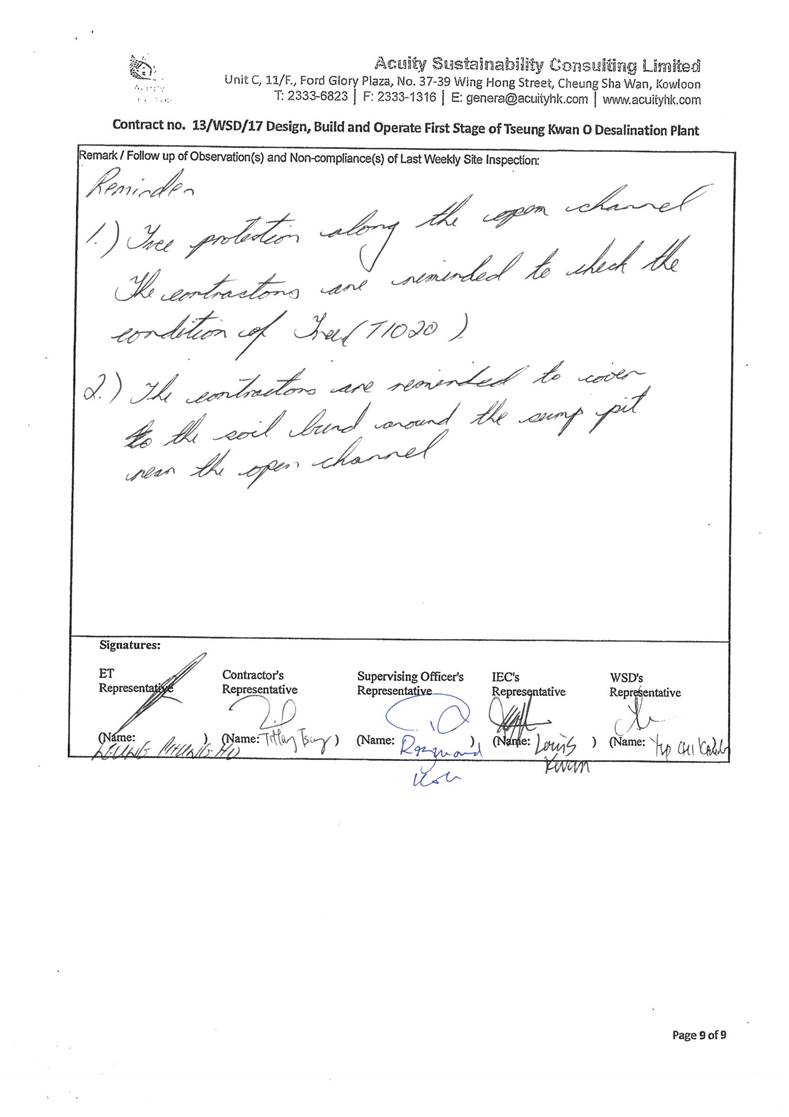 Acuity Sustainability Consulting Limited
Unit C, 11/F., Ford Glory Plaza, No. 37-39 Wing Hong Street, Cheung Sha Wan, Kowloon
T: 2333-6823 | F: 2333-1316 | E: genera@acuityhk.com | www.acuityhk.com
Contract no. 13/WSD/17 Design, Build and Operate First Stage of Tseung Kwan O Desalination Plant
Remark / Follow up of Observation(s) and Non-compliance(s) of Last Weekly Site Inspection:
Reminder
1.) Tree protection along the open channel
The contractors are reminded to check the
condition of Tree (T1020)
2.) The contractors are reminded to cover
to the soil bund around the sump pit
near the open channel
Signatures:
ET Representative
Contractor's Representative
Supervising Officer's Representative
IEC's Representative
WSD's Representative
(Name: LEUNG CHUNG HO)
(Name: Tiffany Tsang)
(Name: Raymond)
(Name: Louis Kwan)
(Name: Yip Chi)
Page 9 of 9